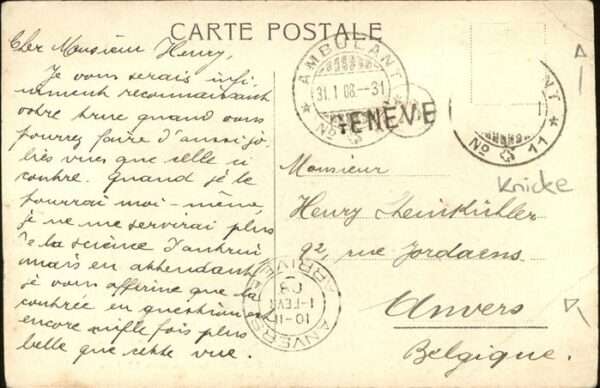 CARTE POSTALE
Cher Monsieur Henry,
Je vous serais infi-
niment reconnaissant
votre truc quand vous
pourrez faire d'aussi jo-
lies vues que celle ci
contre. Quand je le
pourrai moi-même,
je ne me servirai plus
de la science d'autrui
mais en attendant
je vous affirme que la
contrée en question est
encore mille fois plus
belle que cette vue.
AMBULANT
31.1.08.-31
No
GENÈVE
NT
No 11
Knicke
Monsieur
Henry
92, rue Jordaens
Anvers
Belgique.
ANVERS ARRIVÉE
10-11
1-FEVR
08